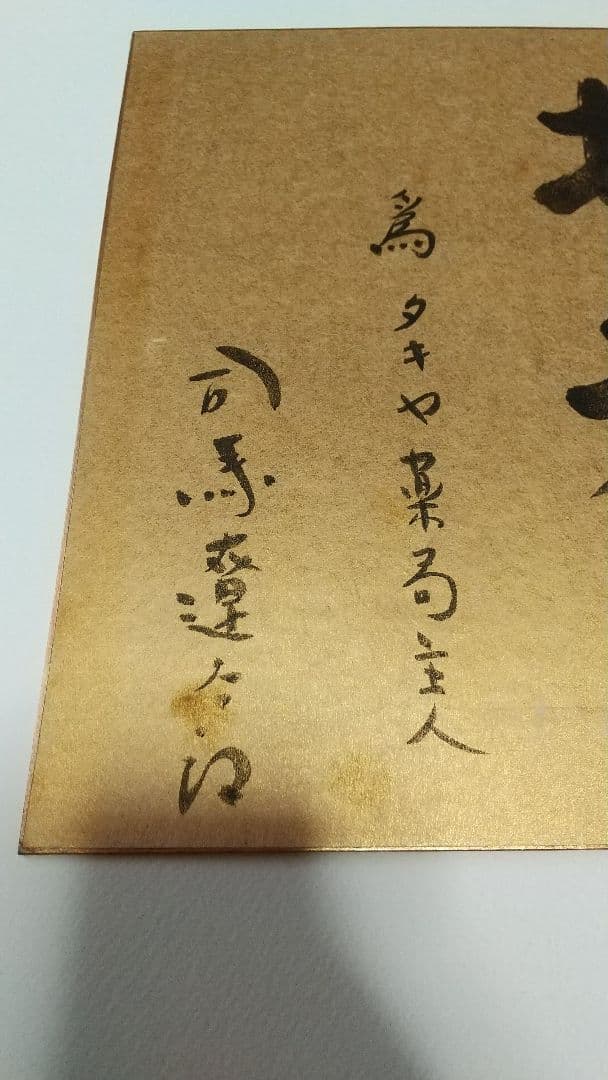 爲タキヤ薬局主人
司馬遼太郎